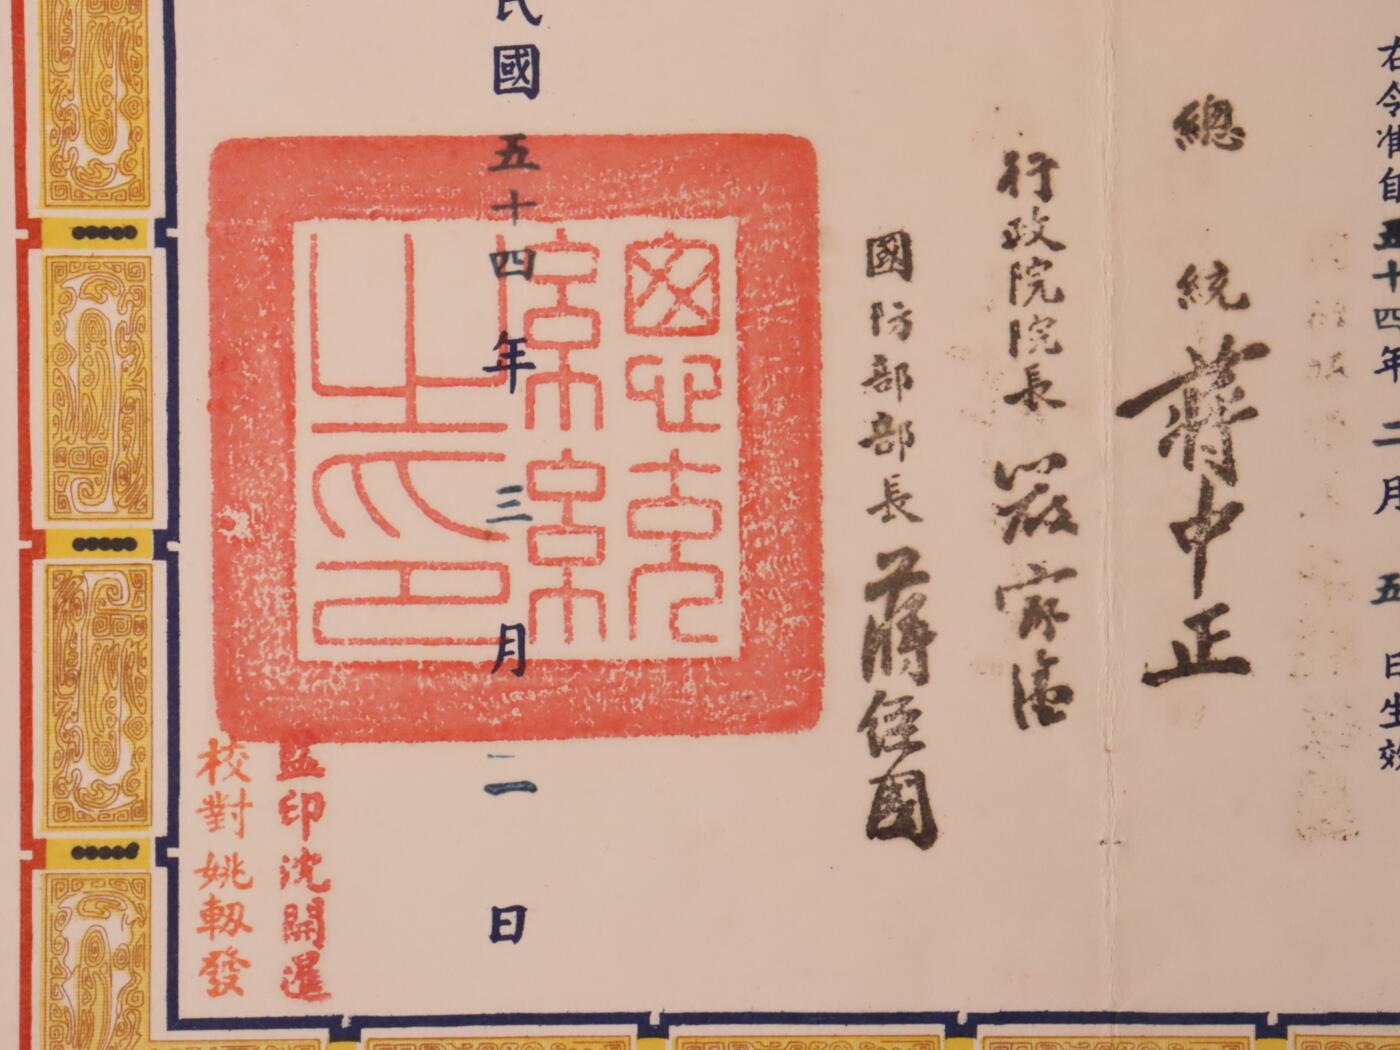 右令准自五十四年二月五日生效
總統蔣中正
行政院院長嚴家淦
國防部部長蔣經國
民國五十四年三月二日
總統府印
監印沈開暹
校對姚軔發